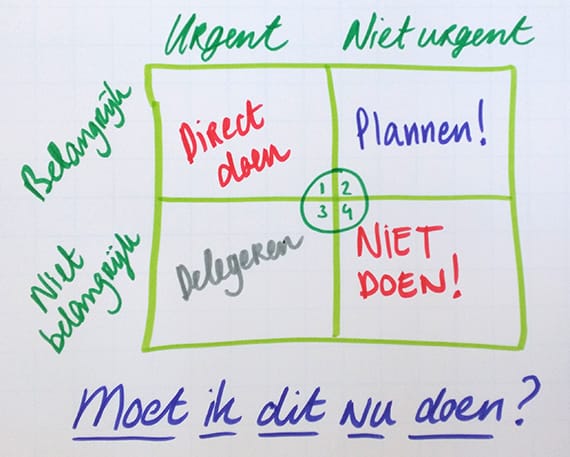 Urgent
Niet urgent
Belangrijk
Direct
doen
Plannen!
1 2
3 4
Niet
belangrijk
Delegeren
NIET
DOEN!
Moet ik dit nu doen?